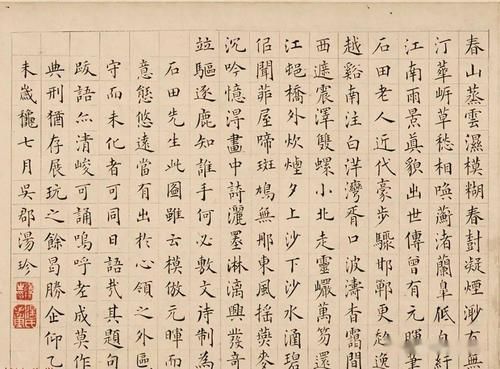 春山蒸雲濕模糊春封凝煙渺有無
汀華岍草愁相喚蘅渚蘭皋低
江南雨景真貌出世傳曾有元暉筆
石田老人近代豪步驟邯鄲更趂逸
越谿南注白洋灣胥口波濤杳靄間
西遮震澤雙螺小北走靈巗萬笏還
江橋外炊煙夕上沙下沙水酒碧
佀聞茆屋啼斑鳩無那東風搖葵麥
沉吟憶得畫中詩灑墨淋漓興發奇
竝驅逐鹿知誰手何必敷文詩制為
石田先生此圖雖云模倣元暉而
意態悠遠當有出於心領之外區
守而未化者可同日語哉其題句
跋語亦清峻可誦嗚呼老成莫作
典刑猶存展玩之餘曷勝企仰乙
未歲穐七月吳郡湯珍